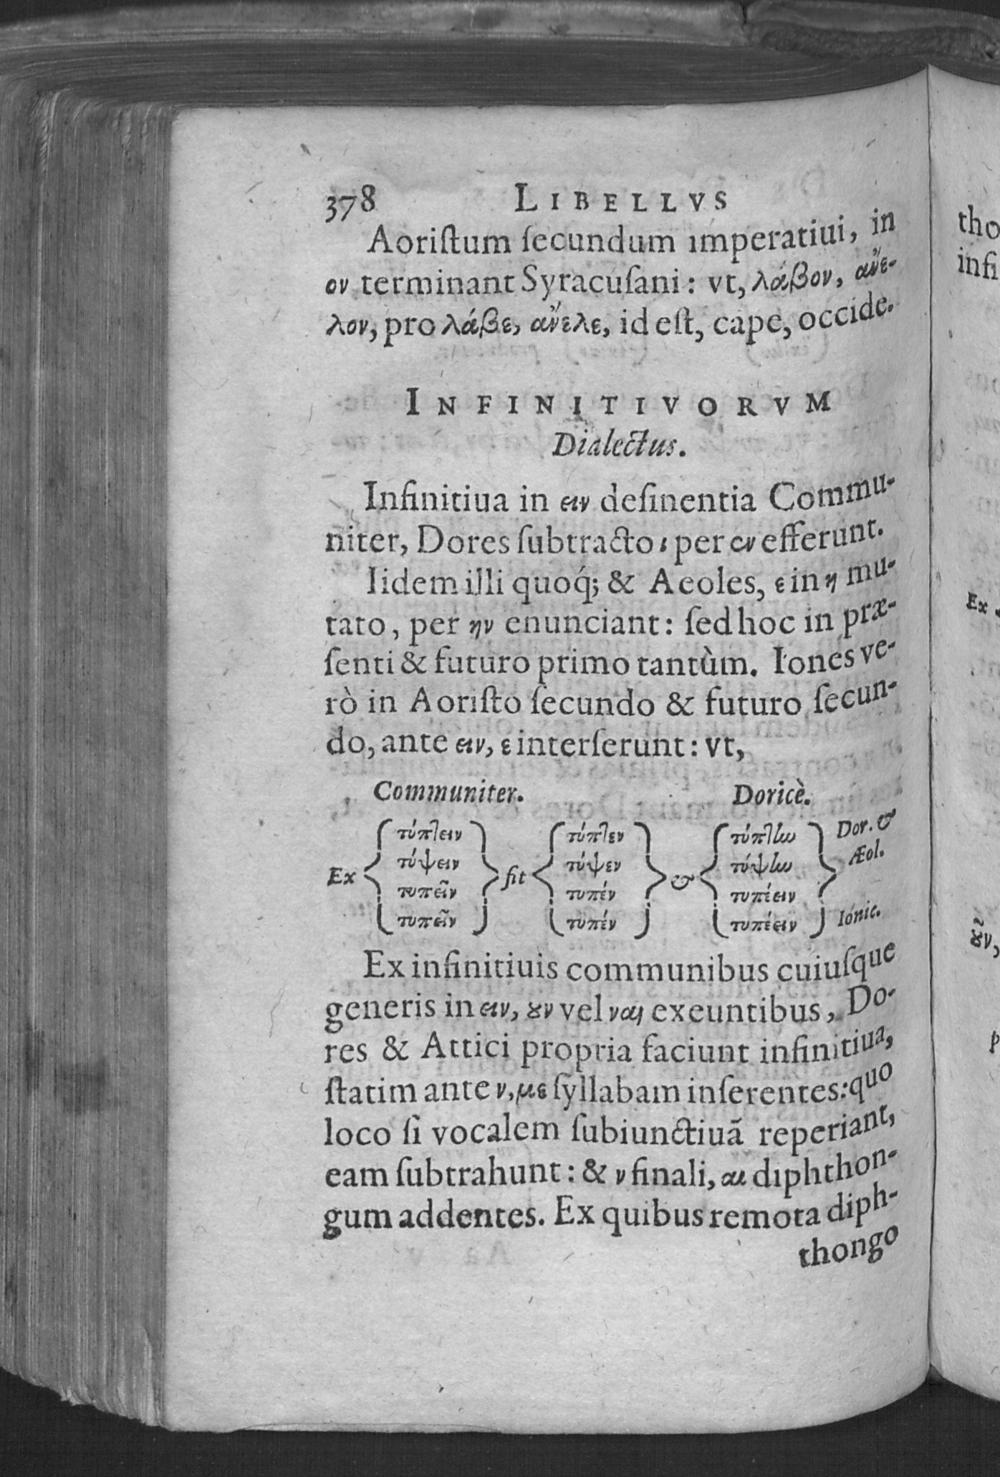 378 LIBELLVS
Aoriſtum ſecundum imperatiui, in
ον terminant Syracuſani: vt, λάβον, ἄνε-
λον, pro λάβε, ἄνελε, id eſt, cape, occide.
INFINITIVORVM
Dialectus.
Infinitiua in ειν deſinentia Commu-
niter, Dores ſubtracto ι per εν efferunt.
Iidem illi quoq́; & Aeoles, ε in η mu-
tato, per ην enunciant: ſed hoc in præ-
ſenti & futuro primo tantùm. Iones ve-
rò in Aoriſto ſecundo & futuro ſecun-
do, ante ειν, ε interſerunt: vt,
Communiter. Doricè.
τύπτειν τύπτεν τύπτην Dor. &
τύψειν τύψεν τύψην Æol.
Ex τυπεῖν fit τυπέν & τυπέειν
τυπεῖν τυπέν τυπέειν Ionic.
Ex infinitiuis communibus cuiuſque
generis in ειν, ȣν vel ναι exeuntibus, Do-
res & Attici propria faciunt infinitiua,
ſtatim ante ν, με ſyllabam inſerentes: quo
loco ſi vocalem ſubiunctiuã reperiant,
eam ſubtrahunt: & ν finali, αι diphthon-
gum addentes. Ex quibus remota diph-
thongo
tho
infi
Ex
ȣ͂ν,